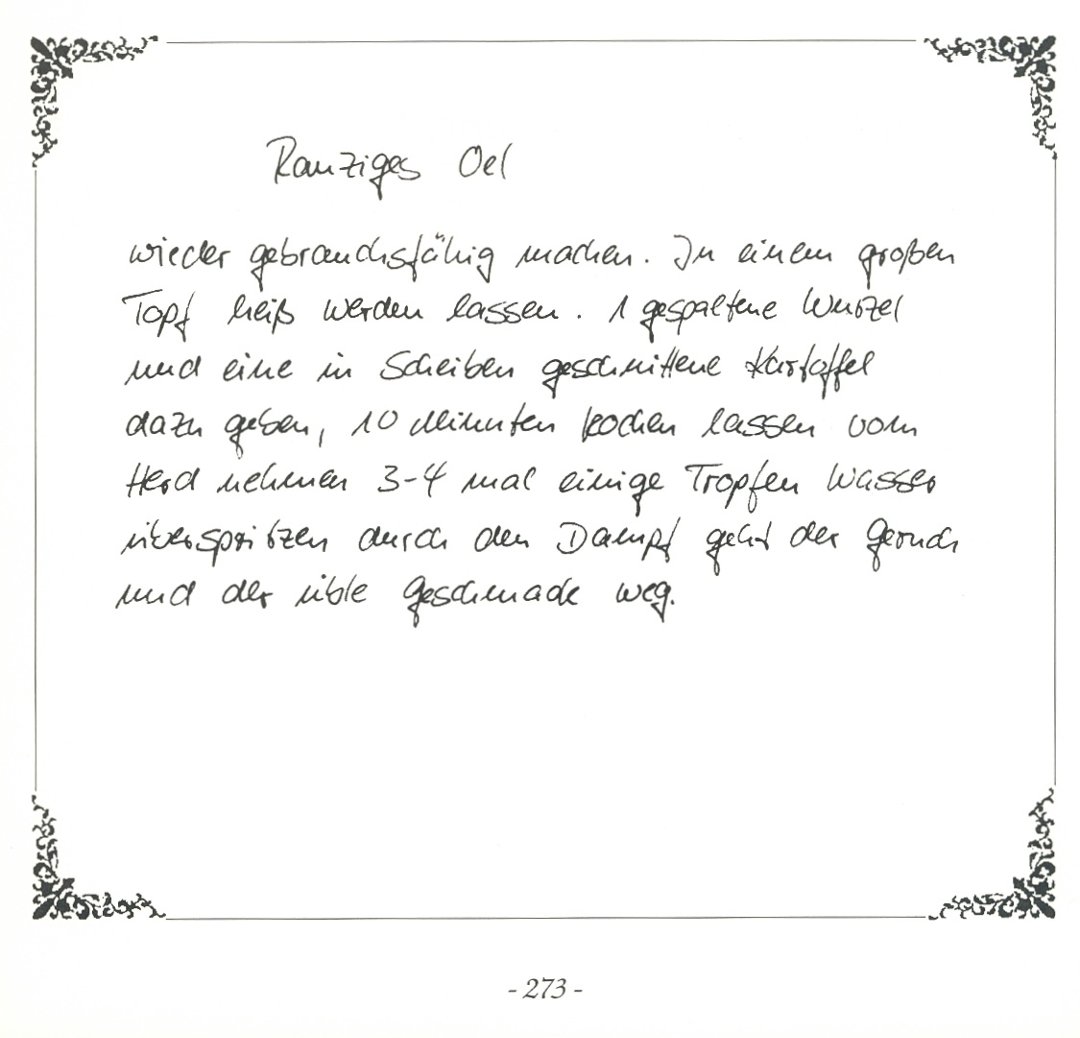 Ranziges Oel
wieder gebrauchsfähig machen. In einem großen
Topf heiß werden lassen. 1 gespaltene Wurzel
und eine in Scheiben geschnittene Kartoffel
dazu geben, 10 Minuten kochen lassen vom
Herd nehmen 3-4 mal einige Tropfen Wasser
überspritzen durch den Dampf geht der Geruch
und der üble Geschmack weg.
- 273 -